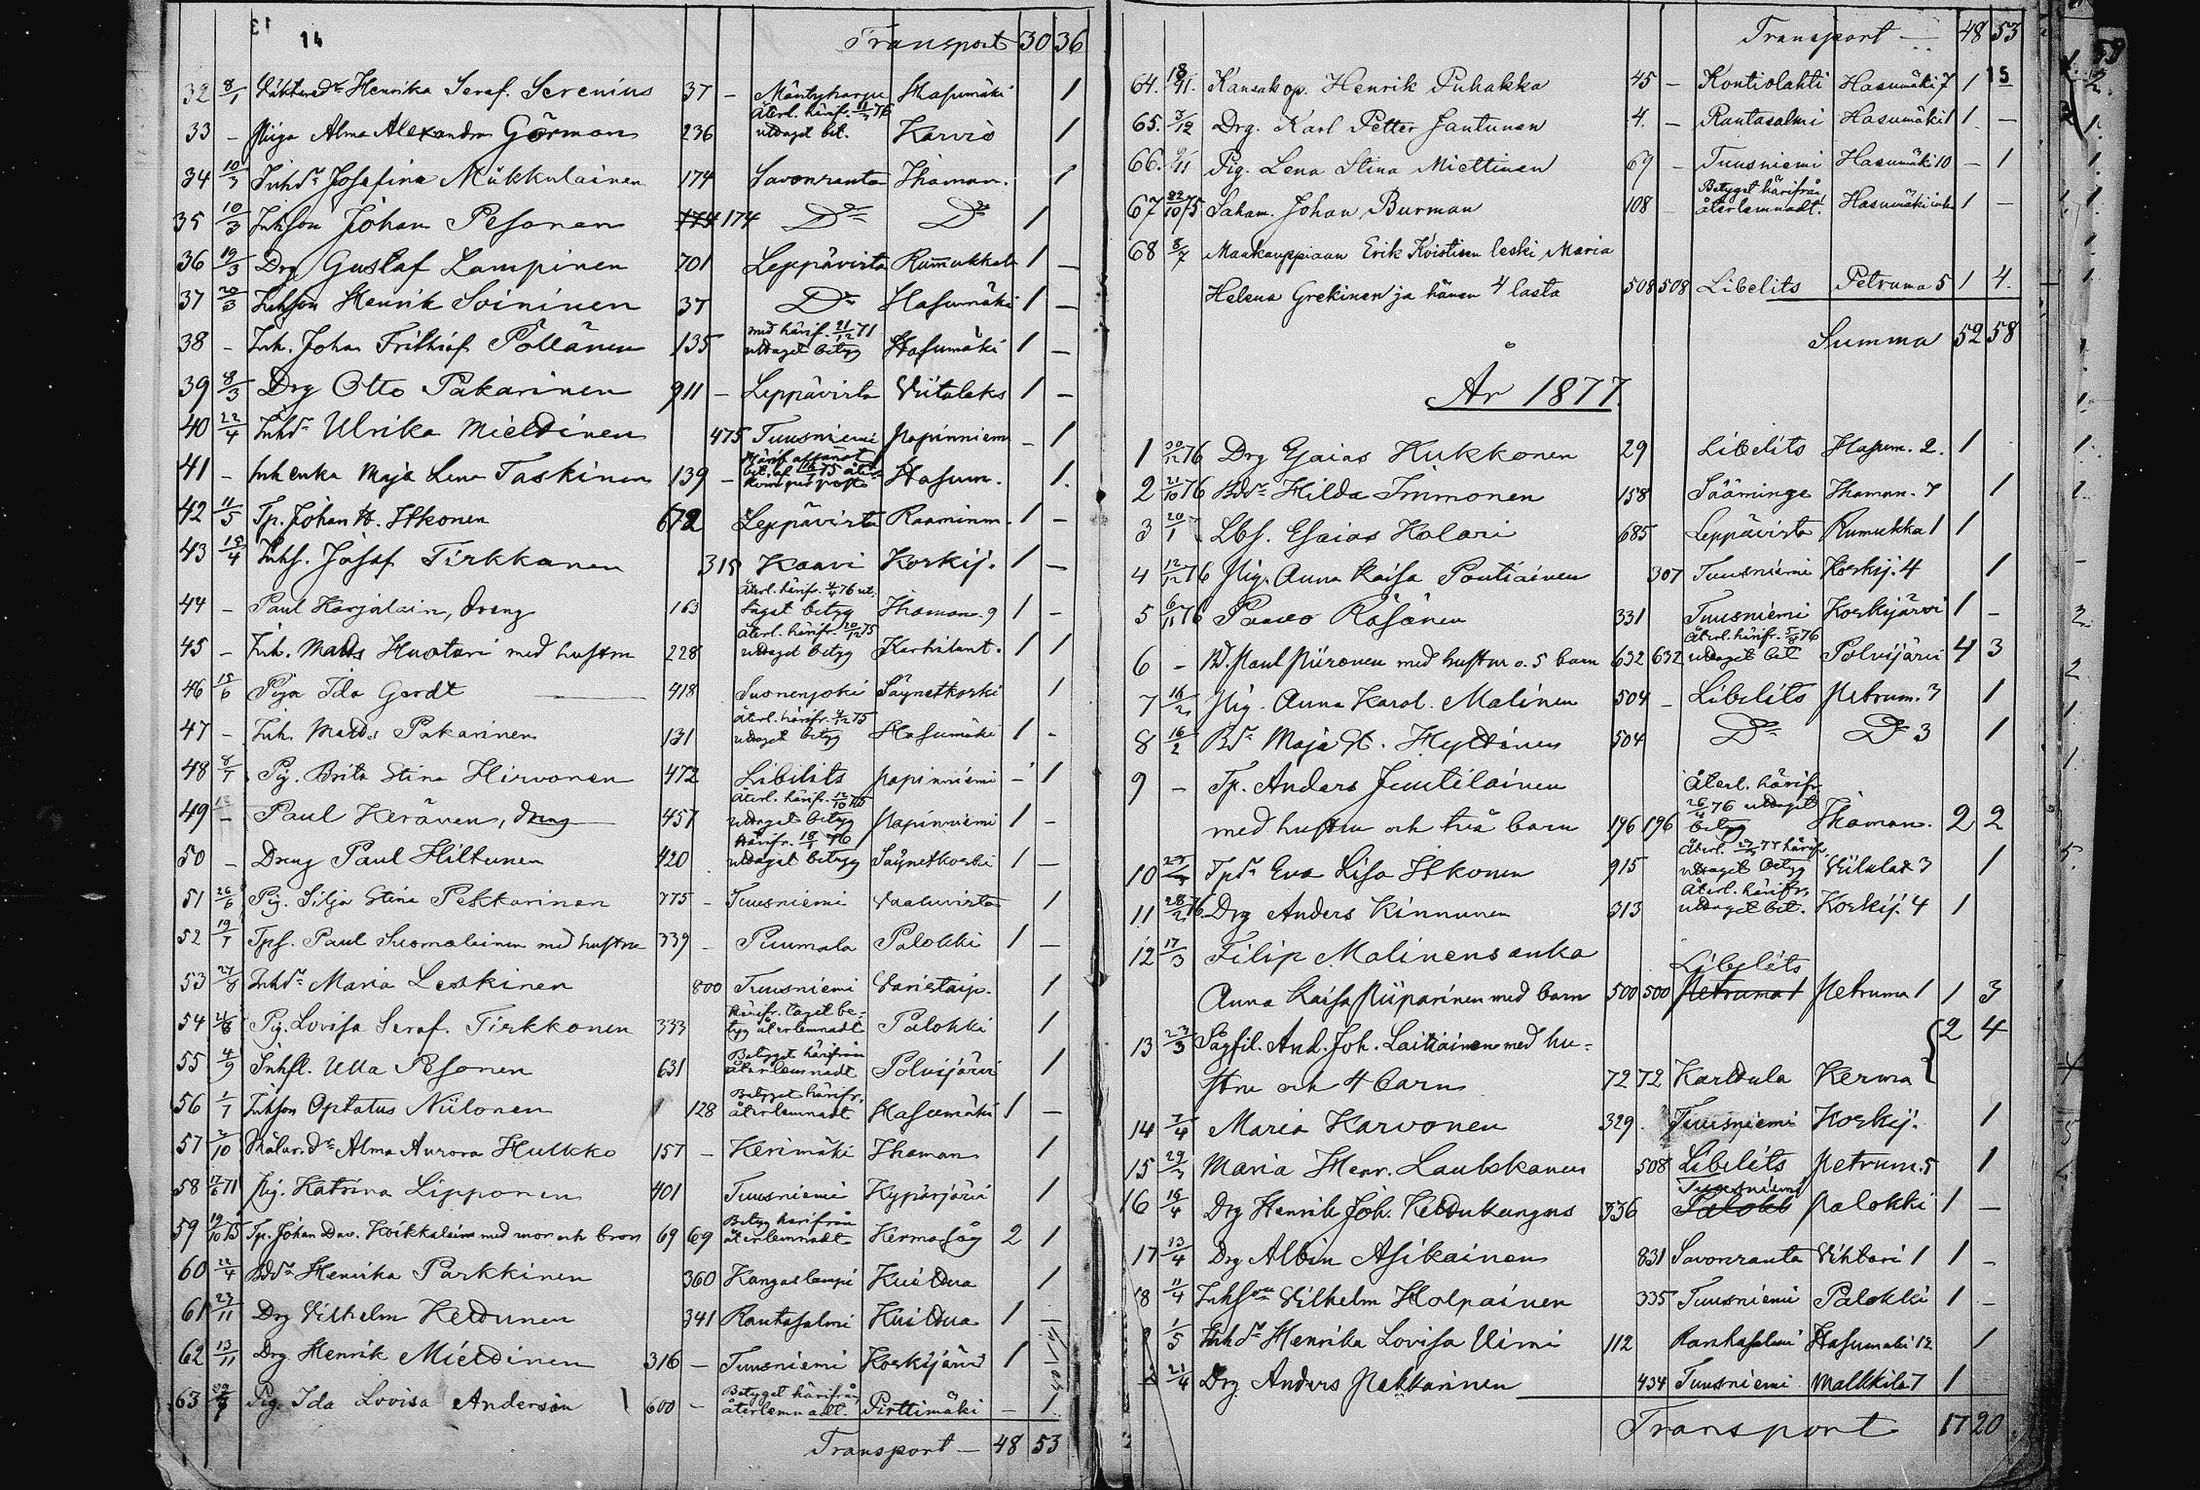 14
Transport 30 36
32 8/1 Henrika Seraf. Serenius 37 - Mäntyharju Hasumäki 1
33 - Piga Alma Alexandra Görman 236 Återl. härif. 11/76 uttaget bet. Karvio 1
34 10/3 Inhdr Josefina Mükkulainen 174 Savonranta Ihaman. 1
35 10/3 Inhson Johan Pesonen 174 174 Do Do 1
36 19/3 Drg Gustaf Lampinen 701 Leppävirta Rumukkala 1 -
37 20/3 Inhson Henrik Soininen 37 Do Hasumäki 1 -
38 - Inh. Johan Frithiof Pöllänen 135 med härif. 21/12 71 uttaget betyg Hasumäki 1 -
39 8/3 Drg Otto Pakarinen 911 - Leppävirta Viitalaks 1 -
40 22/4 Inhdr Ulrika Miettinen 475 Tuusniemi Papinniemi - 1
41 - Inh enka Maja Lena Taskinen 139 - Hasum. 1.
42 11/5 Tp. Johan H. Itkonen 672 Leppävirta Raaminm. 1 -
43 15/4 Inhs. Josef Tirkkonen 315 Kaavi Koskij. 1 -
44 - Paul Karjalain, dreng 163 Återl. härifr. 76 ut. taget betyg Ihaman. 9 1 -
45 - Inh. Matts Huotari med hustru 228 Återl. härifr. 20/12 75 uttaget betyg Karhilant. 1 1
46 15/6 Piga Ida Gerdt 418 Suonenjoki Säynetkoski 1
47 - Inh. Matts Pakarinen 131 Återl. härifr. 4/12 75 uttaget betyg Hasumäki 1 -
48 8/7 Pig. Brita Stina Hirvonen 472 Libelits Papinniemi - 1
49 - Paul Keränen, dreng 457 Återl. härifr. 12/10 75 uttaget betyg Papinniemi 1 -
50 - Dreng Paul Hiltunen 420 Härifr. 18/1 76 uttaget betyg Säynetkoski 1 -
51 26/6 Pig. Silja Stina Pekkarinen 775 - Tuusniemi Vaaluvirta 1
52 19/7 Tpf. Paul Suomalainen med hustru 339 - Puumala Palokki 1 -
53 27/8 Inhdr Maria Leskinen 800 Tuusniemi Varistaip. 1
54 21/8 Pig. Lovisa Seraf. Tirkkonen 333 Härifr. taget betyg återlemnadt Palokki 1
55 4/9 Inhfl. Ulla Pesonen 631 Betyget härifrån återlemnadt Polvijärvi 1
56 1/7 Inhson Optatus Niilonen 128 Betyget härifr. återlemnadt Hasumäki 1 -
57 2/10 Målar.dr Alma Aurora Hulkko 157 - Kerimäki Ihaman 1
58 71 Pig. Katrina Lipponen 401 Tuusniemi Kypärjärvi 1
59 19/10 75 Tp. Johan Dav. Koikkalainen med mor och bror 69 69 Betyg härifrån återlemnadt Kerma såg 2 1
60 22/4 Bdr Henrika Parkkinen 360 Kangaslampi Kuittua 1
61 23/11 Drg Vilhelm Kettunen 341 Rantasalmi Kuittua 1 -
62 13/11 Drg Henrik Miettinen 316 - Tuusniemi Koskijärvi 1
63 Pig. Ida Lovisa Anderson 600 - Betyget härifrån återlemnadt. Pirttimäki - 1.
Transport - 48 53
Transport - 48 53
15
64. 18/11. Kansak op. Henrik Puhakka 45 - Kontiolahti Hasumäki 7 1
65. 3/12 Drg. Karl Petter Jantunen 4. - Rantasalmi Hasumäki 1 1 -
66. 9/11 Pig. Lena Stina Miettinen 69 - Tuusniemi Hasumäki 10 - 1
67 22/10 75 Saham. Johan Burman 108 Betyget härifrån återlemnadt. Hasumäki 1 -
68 8/7 Maakauppiaan Erik Kvistisen leski Maria
Helena Grekinen ja hänen 4 lasta 508 508 Libelits Petruma 5 1 4.
Summa 52 58
År 1877.
1 20/12 76 Drg Esaias Kukkonen 29 Libelits Hasum. 2. 1
2 21/10 76 Bdr Hilda Immonen 158 Sääminge Ihaman. 7 1
3 20/1 Lbs. Esaias Holari 685 Leppävirta Rumukka 1 1
4 12/12 76 Pig. Anna Kaisa Pontiainen 307 Tuusniemi Koskij. 4 1
5 6/11 76 Paavo Räsänen 331 Tuusniemi Koskijärvi 1 -
6 - Bd. Paul Piironen med hustru o. 5 barn 632 632 Återl. härifr. 76 uttaget bet Polvijärvi 4 3
7 16/2 Pig. Anna Karol. Malinen 504 - Libelits Petrum. 3 1
8 16/2 Bdr Maja St. Hyttinen 504 Do Do 3 1
9 - Tp. Anders Juutilainen Återl. härifr.
med hustru och två barn 196 196 26/4 76 uttaget betyg Ihaman. 2 2
10 Tpdr Eva Lisa Itkonen 915 Återl. 77 härifr. uttaget betyg Viitalax 3 1
11 28/2 76 Drg Anders Kinnunen 313 Återl. härifrs uttaget bet. Koskij. 4 1
12 17/3 Filip Malinens enka Libelits
Anna Kaisa Piiparinen med barn 500 500 Petruma 1 Petruma 1 1 3
13 23/3 Sågfil. And. Joh. Laitiainen med hu- 2 4
stru och 4 barn 72 72 Karttula Kerma
14 7/4 Maria Karvonen 329. Tuusniemi Koskij. 1
15 29/3 Maria Henr. Laukkanen 508 Libelits Petrum. 5 1
16 18/4 Drg Henrik Joh. Keldukangas 336 Tuusniemi Palokk Palokki 1 -
17 13/4 Drg Albin Asikainen 831 Savonranta Vihtari 1 1 -
18 11/4 Inhson Vilhelm Holpainen 335 Tuusniemi Palokki 1 -
1/5 Inhdr Henrika Lovisa Viimi 112 Rantasalmi Hasumäki 12 1
21/4 Drg Anders Pekkarinen 434 Tuusniemi Malkkila 7 1
Transport 17 20